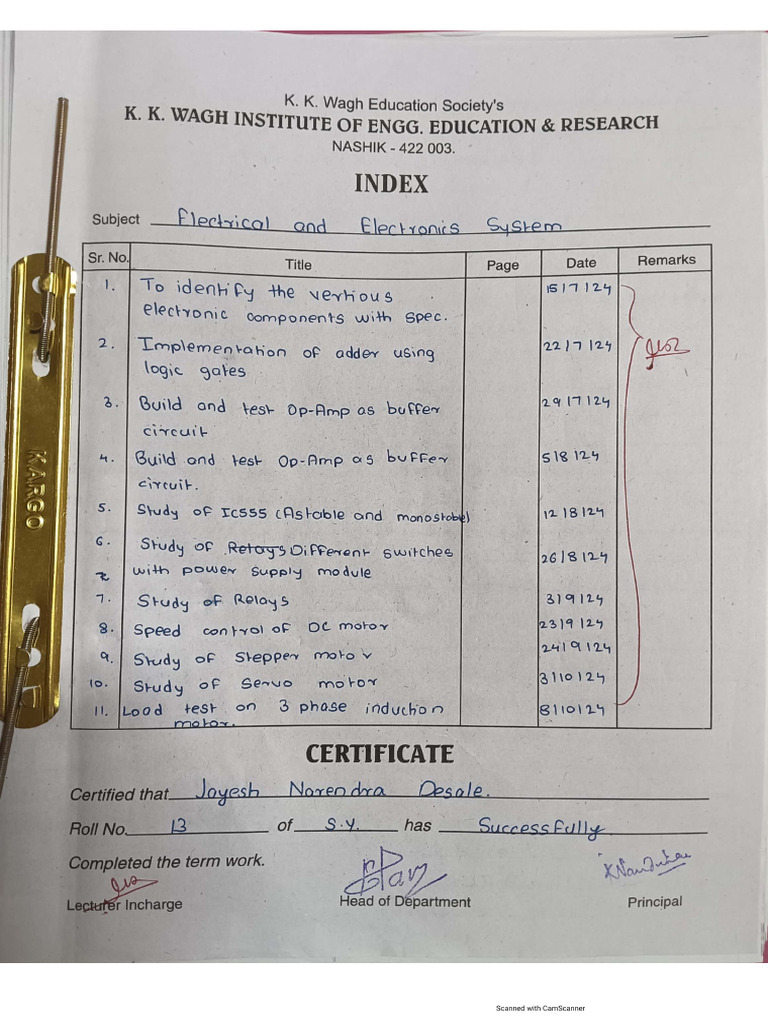 K. K. Wagh Education Society's
K. K. WAGH INSTITUTE OF ENGG. EDUCATION & RESEARCH
NASHIK - 422 003.
INDEX
Subject Electrical and Electronics System
Sr. No. Title Page Date Remarks
1. To identify the vertious 15/7/24
electronic components with spec.
2. Implementation of adder using 22/7/24
logic gates
3. Build and test Op-Amp as buffer 29/7/24
circuit
4. Build and test Op-Amp as buffer 5/8/24
circuit.
5. Study of IC555 (Astable and monostable) 12/8/24
6. Study of Relays Different switches 26/8/24
with power supply module
7. Study of Relays 3/9/24
8. Speed control of DC motor 23/9/24
9. Study of Stepper motor 24/9/24
10. Study of Servo motor 3/10/24
11. Load test on 3 phase induction 8/10/24
motor.
CERTIFICATE
Certified that Jayesh Narendra Desale.
Roll No. 13 of S.Y. has Successfully
Completed the term work.
Lecturer Incharge Head of Department Principal
KARGO
Scanned with CamScanner